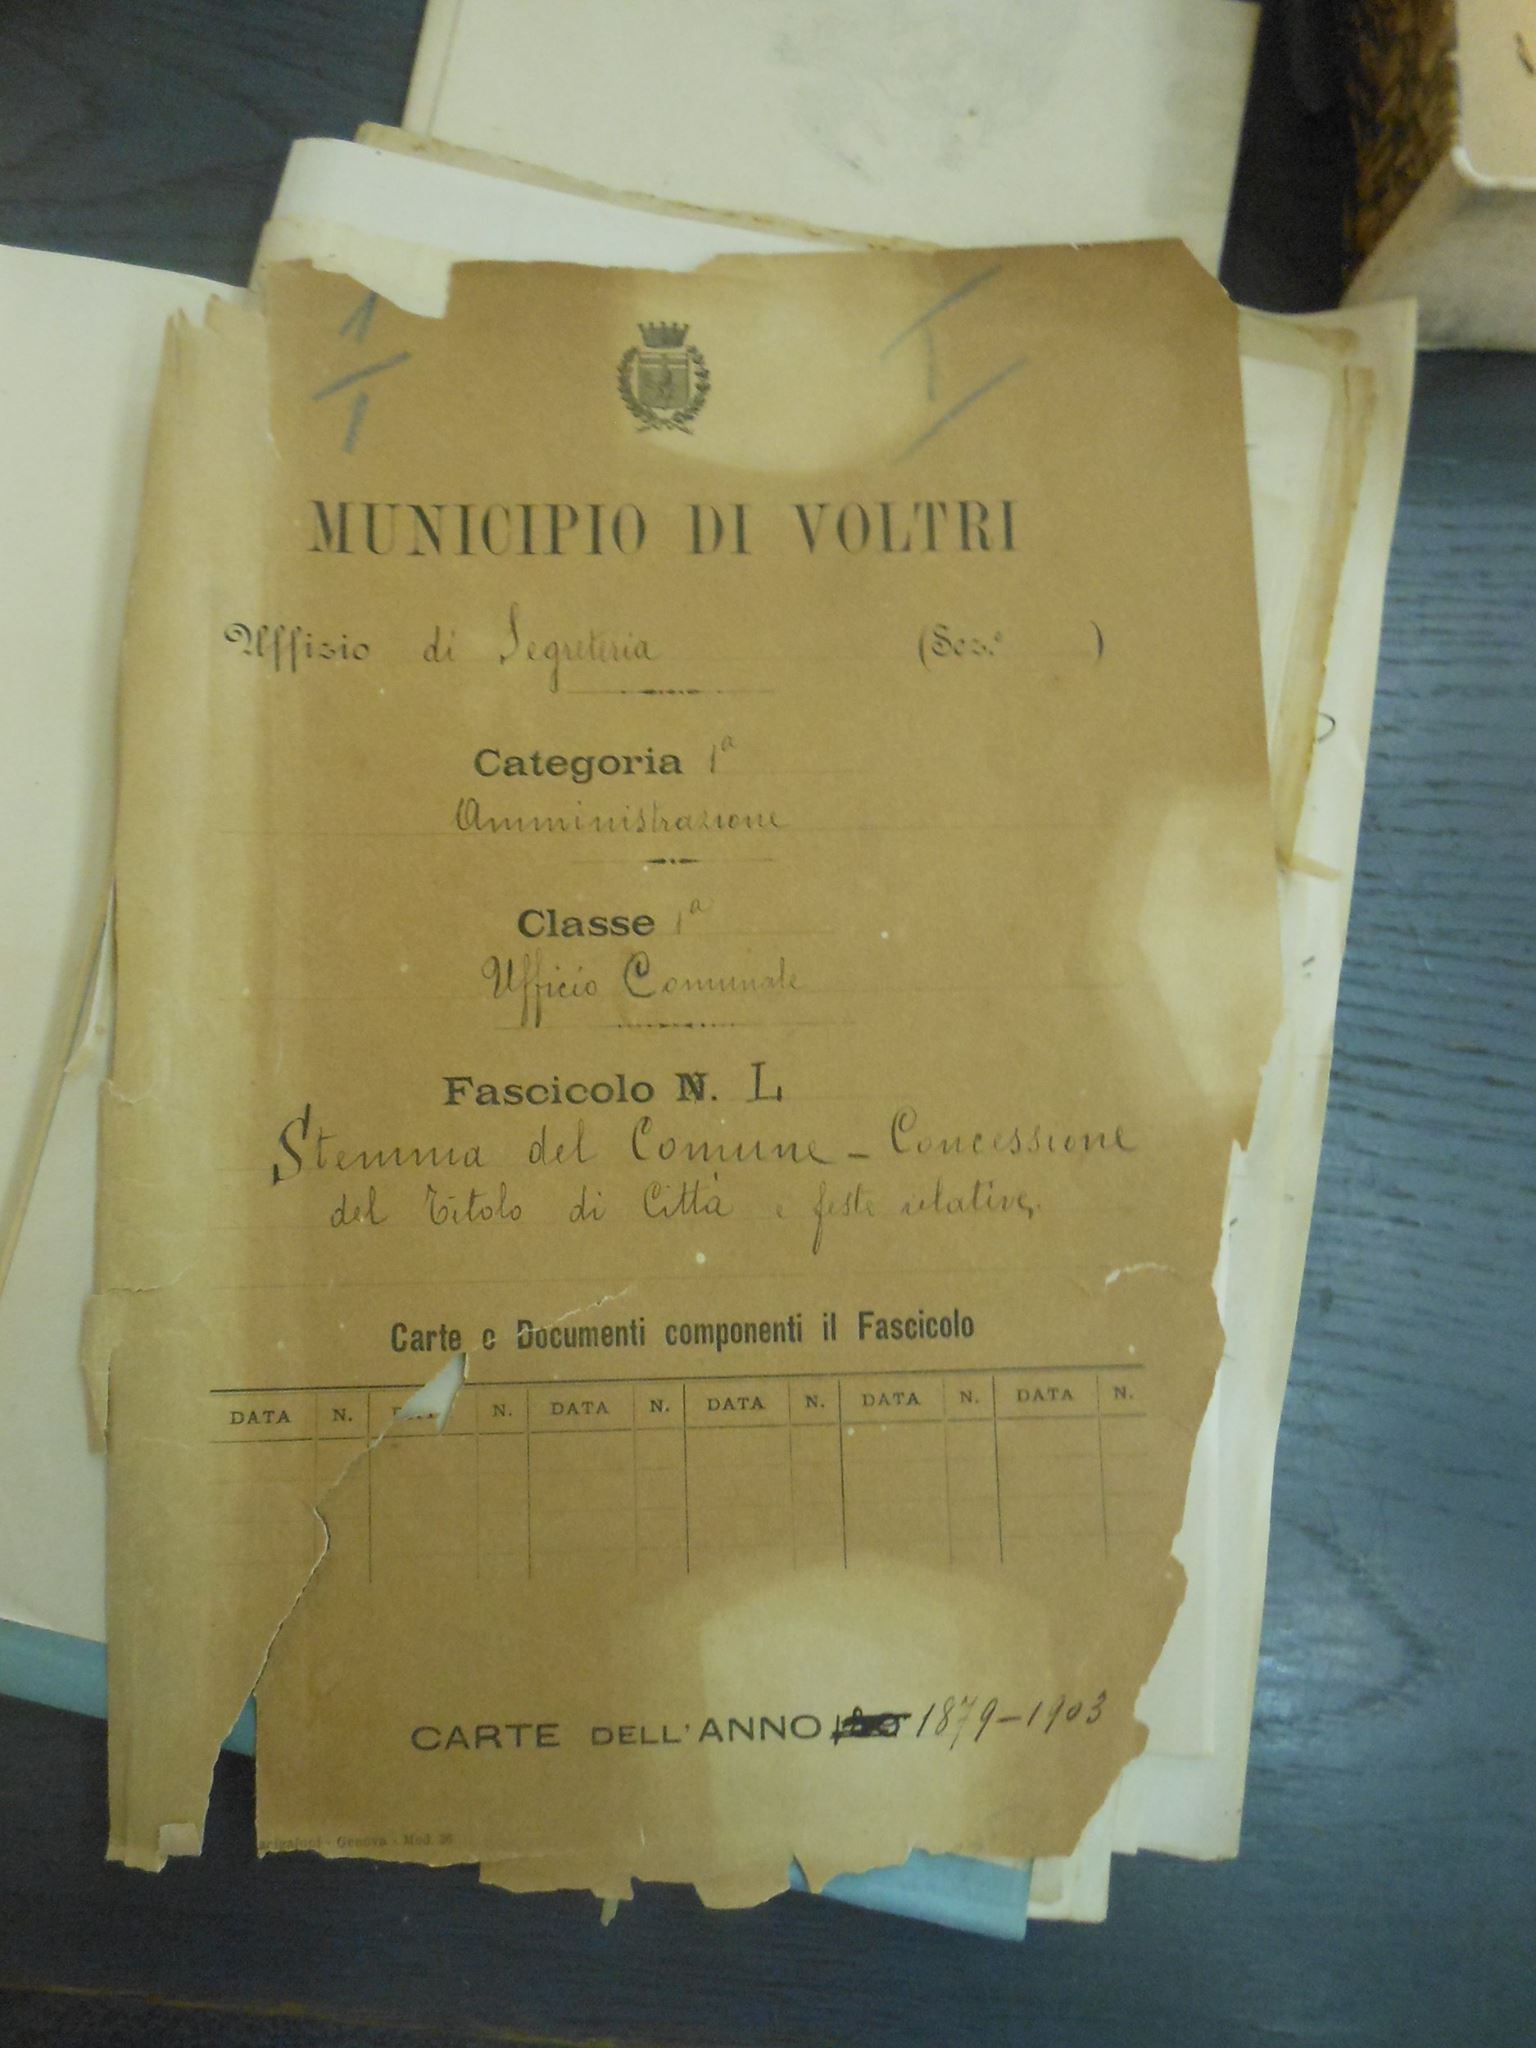 1
I
I
MUNICIPIO DI VOLTRI
Uffizio di Segreteria (Sez.e )
Categoria 1a
Amministrazione
Classe 1a
Ufficio Comunale
Fascicolo N. L
Stemma del Comune - Concessione
del Titolo di Città e feste relative.
Carte e Documenti componenti il Fascicolo
DATA N. DATA N. DATA N. DATA N. DATA N. DATA N.
CARTE DELL'ANNO 1879-1903
Genova - Mod. 36